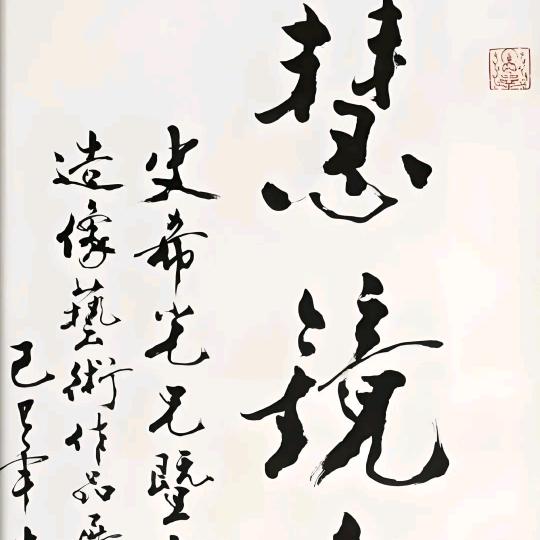 慧鏡
史希光兄暨
造像藝術作品展
己巳年